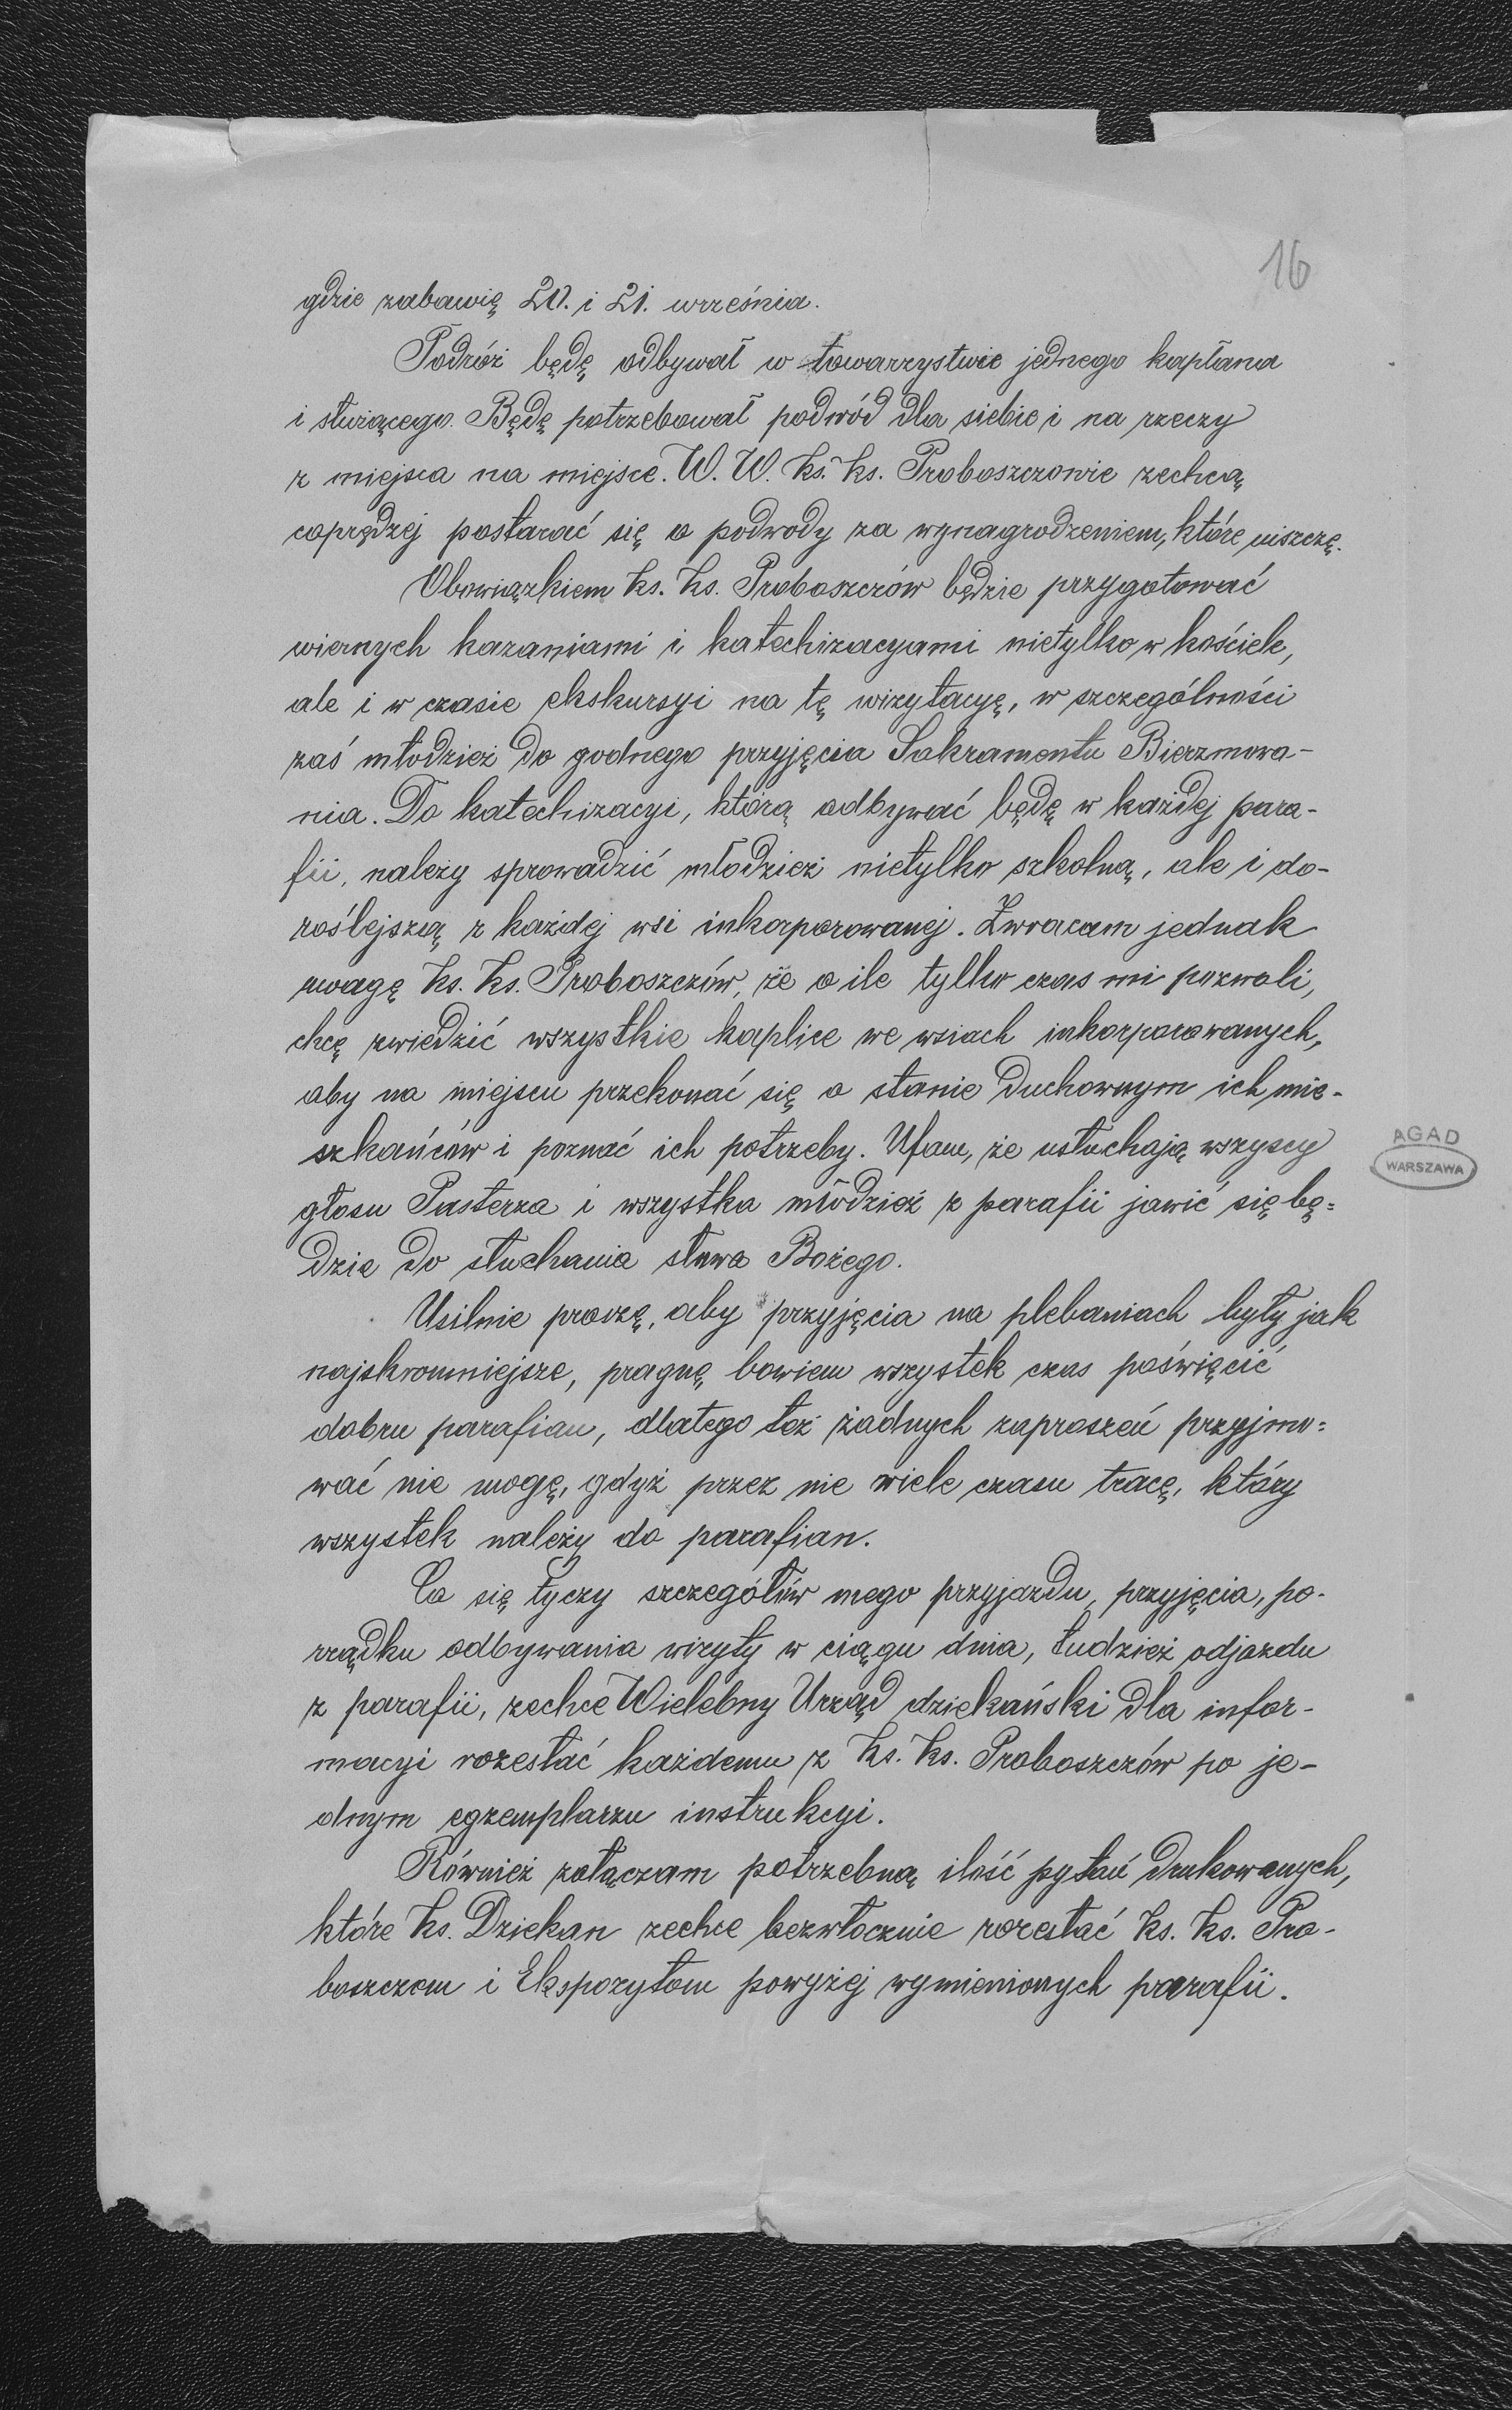 16
gdzie zabawię 20. i 21. września.
Podróż będę odbywał w towarzystwie jednego kapłana
i służącego. Będę potrzebował podwód dla siebie i na rzeczy
z miejsca na miejsce. W. W. ks. ks. Proboszczowie zechcą
coprędzej postarać się o podwody za wynagrodzeniem, które uiszczę.
Obowiązkiem ks. ks. Proboszczów będzie przygotować
wiernych kazaniami i katechizacyami nietylko w kościele,
ale i w czasie ekskursyi na tę wizytacyę, w szczególności
zaś młodzież do godnego przyjęcia Sakramentu Bierzmowa-
nia. Do katechizacyi, którą odbywać będę w każdej para-
fii, należy sprowadzić młodzież nietylko szkolną, ale i do-
roślejszą z każdej wsi inkorporowanej. Zwracam jednak
uwagę ks. ks. Proboszczów, że o ile tylko czas mi pozwoli,
chcę zwiedzić wszystkie kaplice we wsiach inkorporowanych,
aby na miejscu przekonać się o stanie duchownym ich mie-
szkańców i poznać ich potrzeby. Ufam, że usłuchają wszyscy
głosu Pasterza i wszystka młodzież z parafii jawić się bę=
dzie do słuchania słowa Bożego.
Usilnie proszę, aby przyjęcia na plebaniach były jak
najskromniejsze, pragnę bowiem wszystek czas poświęcić
dobru parafian, dlatego też żadnych zaproszeń przyjmo=
wać nie mogę, gdyż przez nie wiele czasu tracę, który
wszystek należy do parafian.
Co się tyczy szczegółów mego przyjazdu, przyjęcia, po-
rządku odbywania wizyty w ciągu dnia, tudzież odjazdu
z parafii, zechce Wielebny Urząd dziekański dla infor-
macyi rozesłać każdemu z ks. ks. Proboszczów po je-
dnym egzemplarzu instrukcyi.
Również załączam potrzebną ilość pytań drukowanych,
które ks. Dziekan zechce bezwłocznie rozesłać ks. ks. Pro-
boszczom i Ekspozytom powyżej wymienionych parafii.
AGAD
WARSZAWA